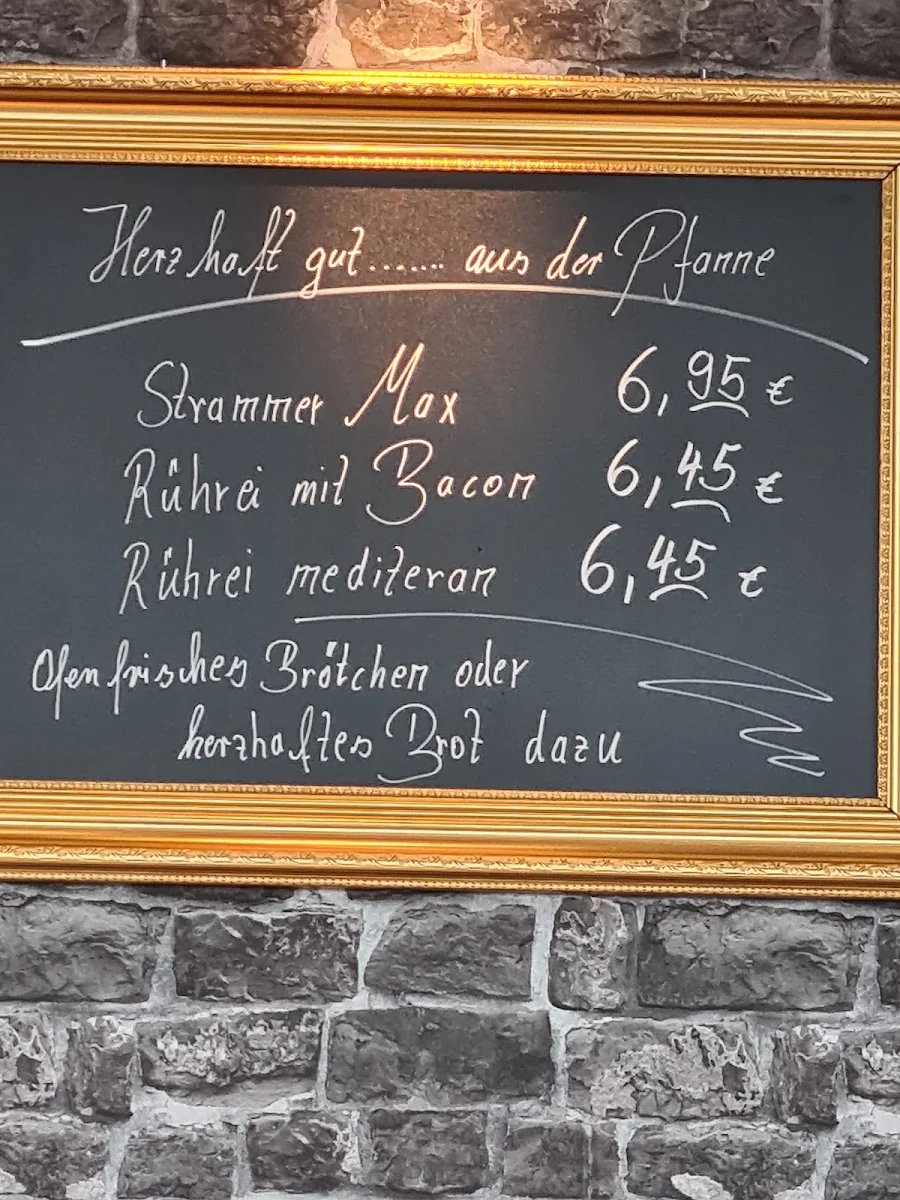 Herzhaft gut....... aus der Pfanne
Strammer Max 6,95 €
Rührei mit Bacon 6,45 €
Rührei mediteran 6,45 €
Ofenfrisches Brötchen oder
herzhaftes Brot dazu